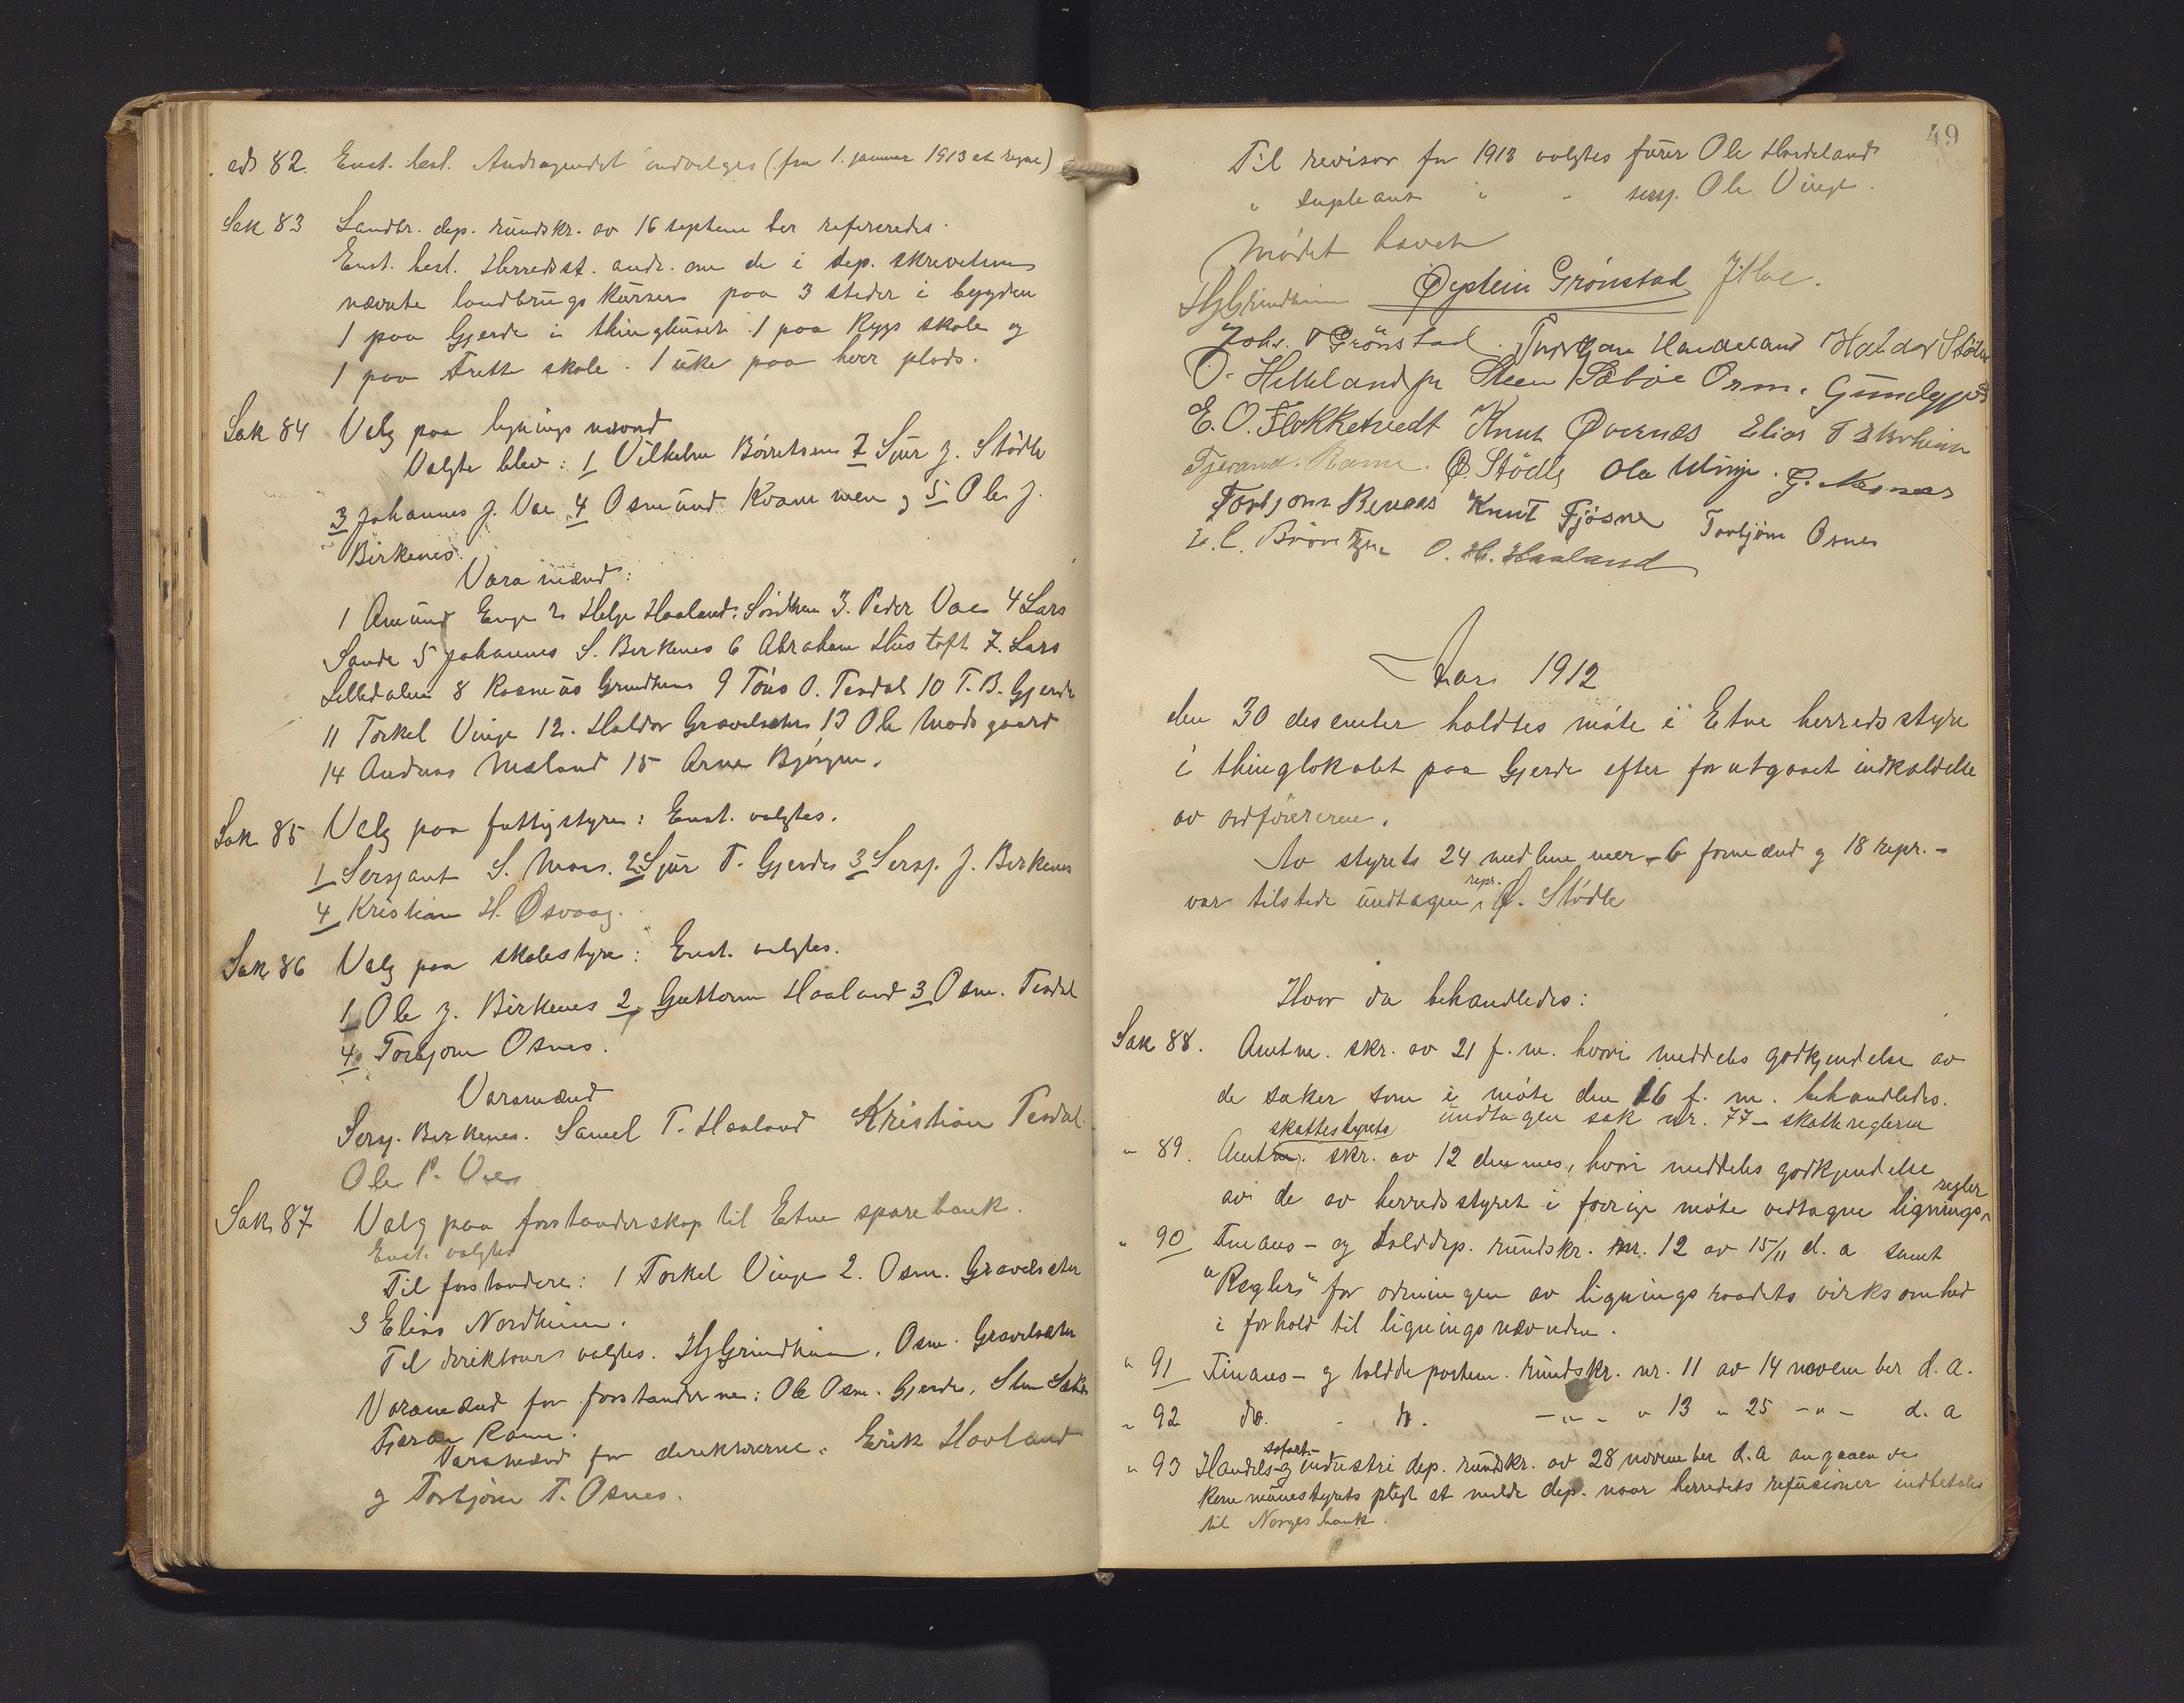 ads 82. Enst. besl. Andragendet indvelges (fra 1. januar 1913 at regne)
Sak 83 Landbr. dep. rundskr. av 16 september refereredes.
Enst. besl. Herredsst. andr. om de i dep. skrivelse
nævnte landbrugskurser paa 3 steder i bygden
1 paa Gjerde i thinghuset 1 paa Rygs skole og
1 paa Frette skole. 1 uke paa hver plads.
Sak 84 Valg paa lignings nævnd
Valgte blev: 1 Vilhelm Børretsen 2 Sjur J. Stødle
3 Johannes J. Vae 4 Osmund Kvammen og 5 Ole J.
Birkenes.
Varamænd:
1 Amund Enge 2 Helge Haaland, Sørdhem 3. Peder Vaer 4 Lars
Sande 5 Johannes S. Birkenes 6 Abraham Hustoft 7. Lars
Lilledalen 8 Rasmus Grindheim 9 Tøns O. Tesdal 10 T. B. Gjerde
11 Torkel Vinje 12. Haldor Gravelsæter 13 Ole Mads gaard
14 Andreas Mæland 15 Arne Bjørgen.
Sak 85 Valg paa fattigstyre: Enst. valgtes.
1 Sersjant S. Moes. 2 Sjur T. Gjerde 3 Sersj. J. Birkenes
4 Kristian H. Osvaag.
Sak 86 Valg paa skolestyre: Enst. valgtes.
1 Ole J. Birkenes 2 Guttorm Haaland 3 Osm. Tesdal
4 Torbjørn Osnes.
Varamænd
Sersj. Birkenes. Samuel T. Haaland Kristian Tesdal
Ole P. Vaer
Sak 87 Valg paa forstanderskap til Etne sparebank.
Enst. valgtes
Til forstandere: 1 Torkel Vinje 2. Osm. Gravelsæter
3 Elias Nordheim.
Til direktører valgtes. H J Grindheim, Osm. Gravelsæter
Varamænd for forstanderne: Ole Osm. Gjerde, Sten Sæbø
Tjeran Rame.
Varamænd for direktørerne. Erik Haaland
og Torbjørn T. Osnes.
49
Til revisor for 1913 valgtes furer Ole Hardeland
" supleant " - sersj. Ole Vinje.
Mødet hævet
H J Grindheim Øystein Grønstad J Moe.
Johs. T Grönstad. Torkjan Handeland Haldor Stødle
O. Helleland jr Steen Sæbøe Osm. Gundegjerd
E. O. Flokketvedt Knut Øvernæs Elias T Nordheim
Tjerand. Rame. Ø. Stödle Ola Vinje. G. Næsnes
Torbjørn Benæs Knut Fjösne Torbjørn Osnes
E. C. Börretzen O. H. Haaland
Aar 1912
den 30 desember holdtes møte i Etne herredsstyre
i thinglokalet paa Gjerde efter forutgaaet indkaldelse
av ordføreren.
Av styrets 24 medlemmer - 6 formænd og 18 repr. -
var tilstede undtagen repr. Ø. Stödle
Hvor da behandledes:
Sak 88. Amtm. skr. av 21 f. m. hvori meddeles godkjendelse av
de saker som i møte den 16 f. m. behandledes.
undtagen sak nr. 77 - skattereglerne
skattestyrets
" 89. Amtm. skr. av 12 dennes, hvori meddeles godkjendelse
av de av herredsstyret i forrige møte vedtagne lignings regler
" 90 Finans- og tolddep. rundskr. nr. 12 av 15/11 d. a samt
"Regler" for ordningen av ligningsraadets virksomhed
i forhold til ligningsnævnden.
" 91 Finans- og tolddepartem. rundskr. nr. 11 av 14 november d. a.
" 92 do. - do. - " - " 13 " 25 - " - d. a
" 93 Handels- søfart- og industri dep. rundskr. av 28 november d. a angaaende
kommunestyrets pligt at melde dep. naar herredets refusioner indbetales
til Norges bank.